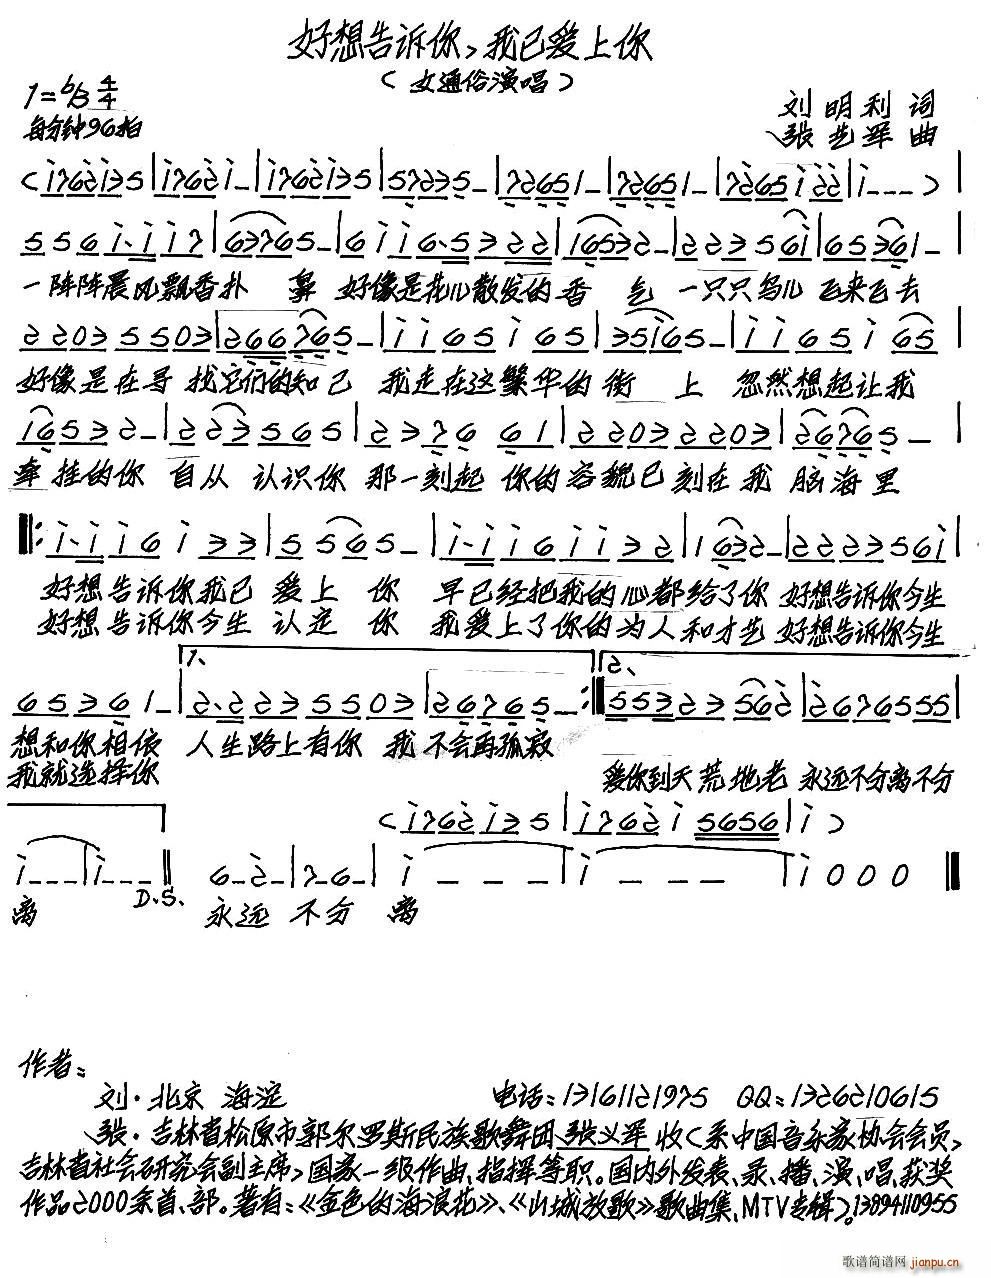 好想告诉你，我已爱上你
（女通俗演唱）
1=♭B 4/4
每分钟96拍
刘明利 词
张艺军 曲
一阵阵晨风飘香扑 鼻 好像是花儿散发的香 气 一只只鸟儿飞来飞去
好像是在寻找它们的知己 我走在这繁华的街 上 忽然想起让我
牵挂的你 自从认识你 那一刻起 你的容貌已刻在我脑海里
好想告诉你我已爱上 你 早已经把我的心都给了你 好想告诉你今生
好想告诉你今生认定 你 我爱上了你的为人和才艺 好想告诉你今生
1、
2、
想和你相依 人生路上有你 我不会再孤寂
我就选择你 爱你到天荒地老 永远不分离不分
D.S.
离 永远 不分 离
作者：
刘·北京 海淀 电话：13161121975 QQ：1326210615
张·吉林省松原市郭尔罗斯民族歌舞团张义军 收（系中国音乐家协会会员，
吉林省社会研究会副主席，国家一级作曲、指挥等职。国内外发表、录、播、演、唱、获奖
作品2000余首、部。著有：《金色的海浪花》、《山城放歌》歌曲集、MTV专辑）。13894110955
歌谱简谱网 jianpu.cn